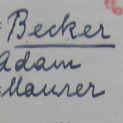 Becker
Adam
Maurer